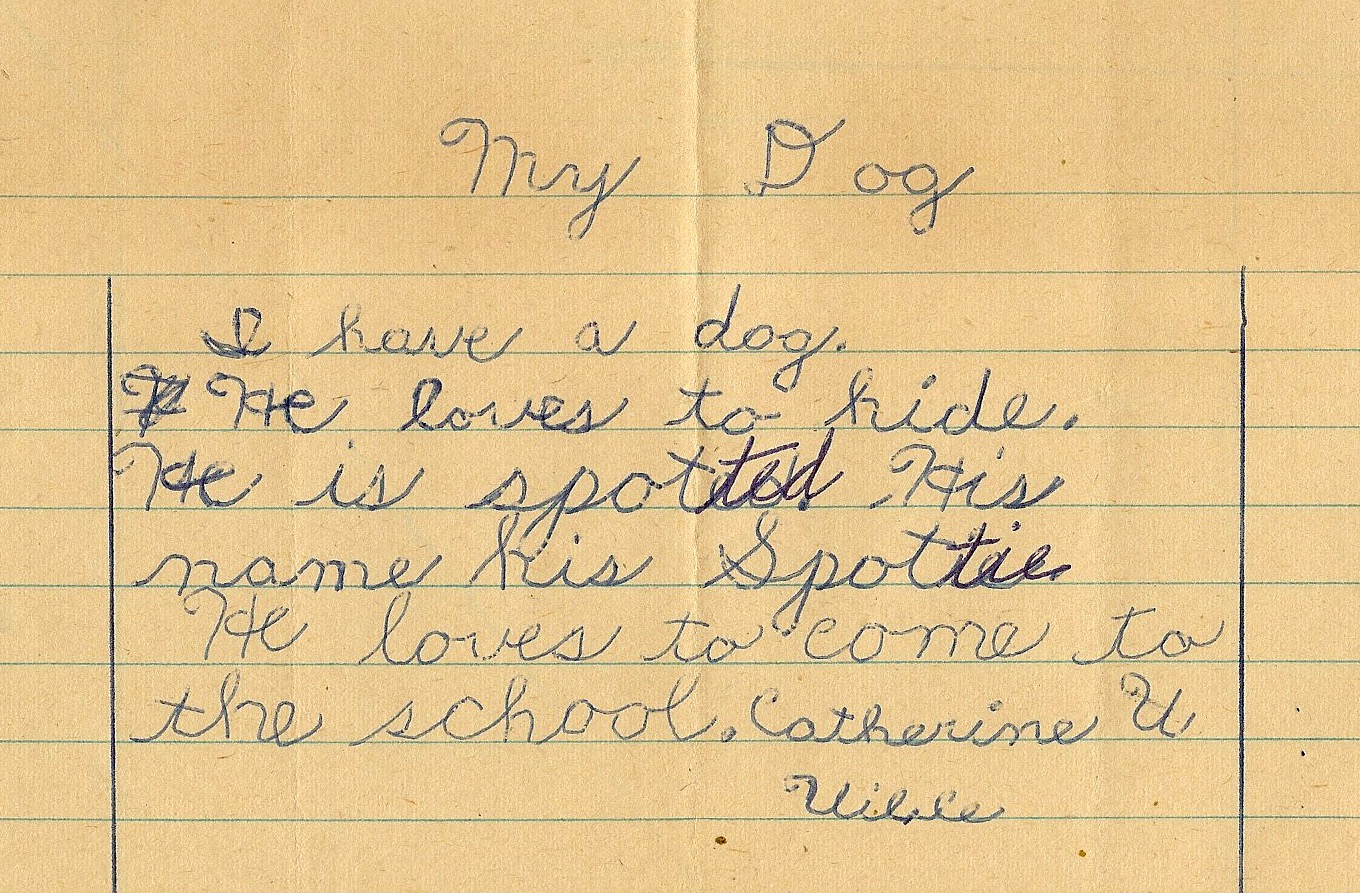 My Dog
I have a dog.
He loves to hide.
He is spotted. His
name his Spottie.
He loves to come to
the school. Catherine U